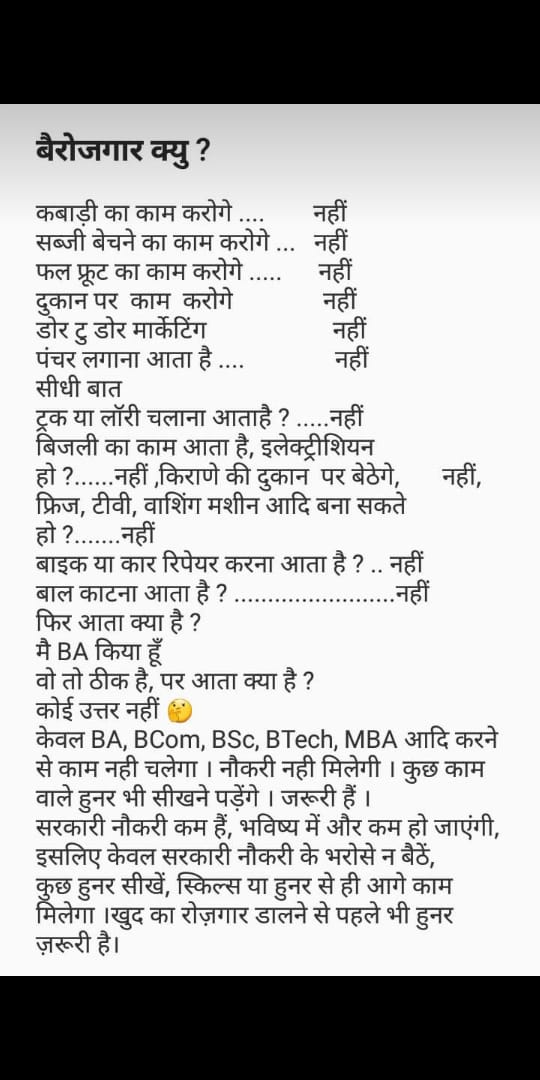 बैरोजगार क्यु ?
कबाड़ी का काम करोगे .... नहीं
सब्जी बेचने का काम करोगे ... नहीं
फल फ्रूट का काम करोगे ..... नहीं
दुकान पर काम करोगे नहीं
डोर टु डोर मार्केटिंग नहीं
पंचर लगाना आता है .... नहीं
सीधी बात
ट्रक या लॉरी चलाना आताहै ? .....नहीं
बिजली का काम आता है, इलेक्ट्रीशियन
हो ?......नहीं ,किराणे की दुकान पर बेठेगे, नहीं,
फ्रिज, टीवी, वाशिंग मशीन आदि बना सकते
हो ?.......नहीं
बाइक या कार रिपेयर करना आता है ? .. नहीं
बाल काटना आता है ? ........................नहीं
फिर आता क्या है ?
मै BA किया हूँ
वो तो ठीक है, पर आता क्या है ?
कोई उत्तर नहीं 🤔
केवल BA, BCom, BSc, BTech, MBA आदि करने
से काम नही चलेगा । नौकरी नही मिलेगी । कुछ काम
वाले हुनर भी सीखने पड़ेंगे । जरूरी हैं ।
सरकारी नौकरी कम हैं, भविष्य में और कम हो जाएंगी,
इसलिए केवल सरकारी नौकरी के भरोसे न बैठें,
कुछ हुनर सीखें, स्किल्स या हुनर से ही आगे काम
मिलेगा ।खुद का रोज़गार डालने से पहले भी हुनर
ज़रूरी है।